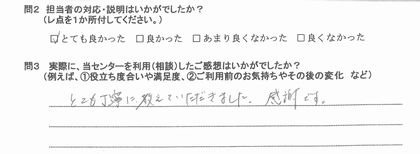 問2 担当者の対応・説明はいかがでしたか？
(レ点を1か所付してください。)
☑とても良かった □良かった □あまり良くなかった □良くなかった
問3 実際に、当センターを利用(相談)したご感想はいかがでしたか？
(例えば、①役立ち度合いや満足度、②ご利用前のお気持ちやその後の変化 など)
とても丁寧に教えていただきました。感謝です。